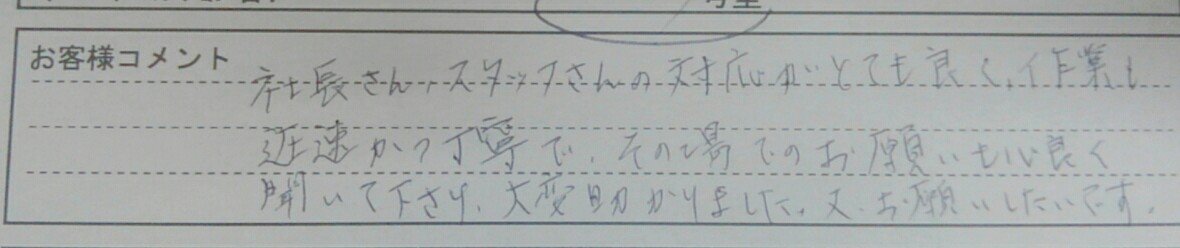 お客様コメント
社長さん、スタッフさんの対応がとても良く、作業も
迅速かつ丁寧で、その場でのお願いも心良く
聞いて下さり、大変助かりました。又、お願いしたいです。